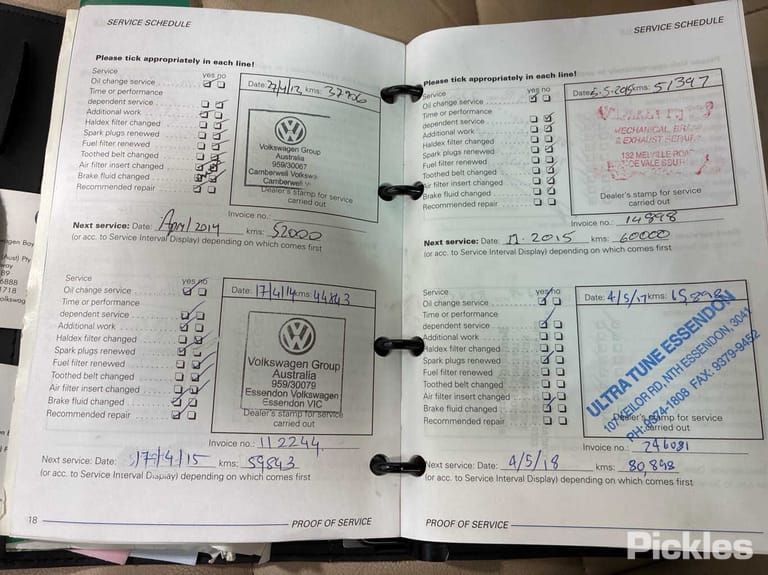 SERVICE SCHEDULE
Please tick appropriately in each line!
Service
yes no
Oil change service
Time or performance
dependent service
Additional work
Haldex filter changed
Spark plugs renewed
Fuel filter renewed
Toothed belt changed
Air filter insert changed
Brake fluid changed
Recommended repair
Date: kms:
Volkswagen Group
Australia
959/30067
Camberwell
Camberwell
Dealer's stamp for service
carried out
Invoice no.:
Next service: Date: April 2014 kms: 52000
(or acc. to Service Interval Display) depending on which comes first
Service
yes no
Oil change service
Time or performance
dependent service
Additional work
Haldex filter changed
Spark plugs renewed
Fuel filter renewed
Toothed belt changed
Air filter insert changed
Brake fluid changed
Recommended repair
Date: 17/4/14 kms: 44843
Volkswagen Group
Australia
959/30079
Essendon Volkswagen
Essendon VIC
Dealer's stamp for service
carried out
Invoice no.: 112244
Next service: Date: 17/4/15 kms: 59843
(or acc. to Service Interval Display) depending on which comes first
18
PROOF OF SERVICE
SERVICE SCHEDULE
Please tick appropriately in each line!
Service
yes no
Oil change service
Time or performance
dependent service
Additional work
Haldex filter changed
Spark plugs renewed
Fuel filter renewed
Toothed belt changed
Air filter insert changed
Brake fluid changed
Recommended repair
Date: kms: 51397
MECHANICAL
& EXHAUST REPAIRS
132 MELVILLE ROAD
VALE SOUTH
Dealer's stamp for service
carried out
Invoice no.: 14898
Next service: Date: 11.2015 kms: 60000
(or acc. to Service Interval Display) depending on which comes first
Service
yes no
Oil change service
Time or performance
dependent service
Additional work
Haldex filter changed
Spark plugs renewed
Fuel filter renewed
Toothed belt changed
Air filter insert changed
Brake fluid changed
Recommended repair
Date: 4/5/17 kms: 65,898
ULTRA TUNE ESSENDON
107 KEILOR RD, NTH ESSENDON, 3041
PH: 9374-1808 FAX: 9379-9452
Dealer's stamp for service
carried out
Invoice no.: 246081
Next service: Date: 4/5/18 kms: 80,898
(or acc. to Service Interval Display) depending on which comes first
PROOF OF SERVICE
Pickles